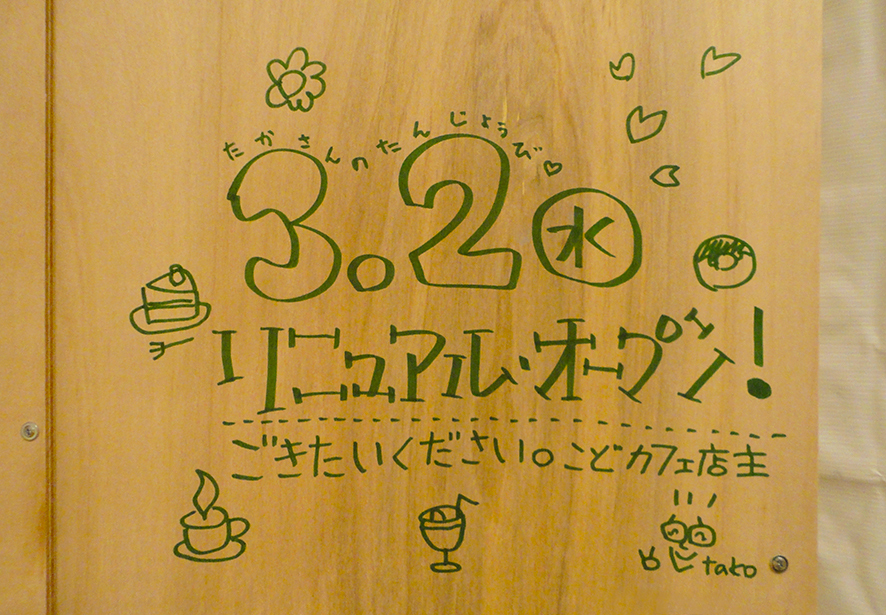 たかさんのたんじょうび♡
3.2 水
リニュアル・オープン!
ごきたいください。こどカフェ店主
tako